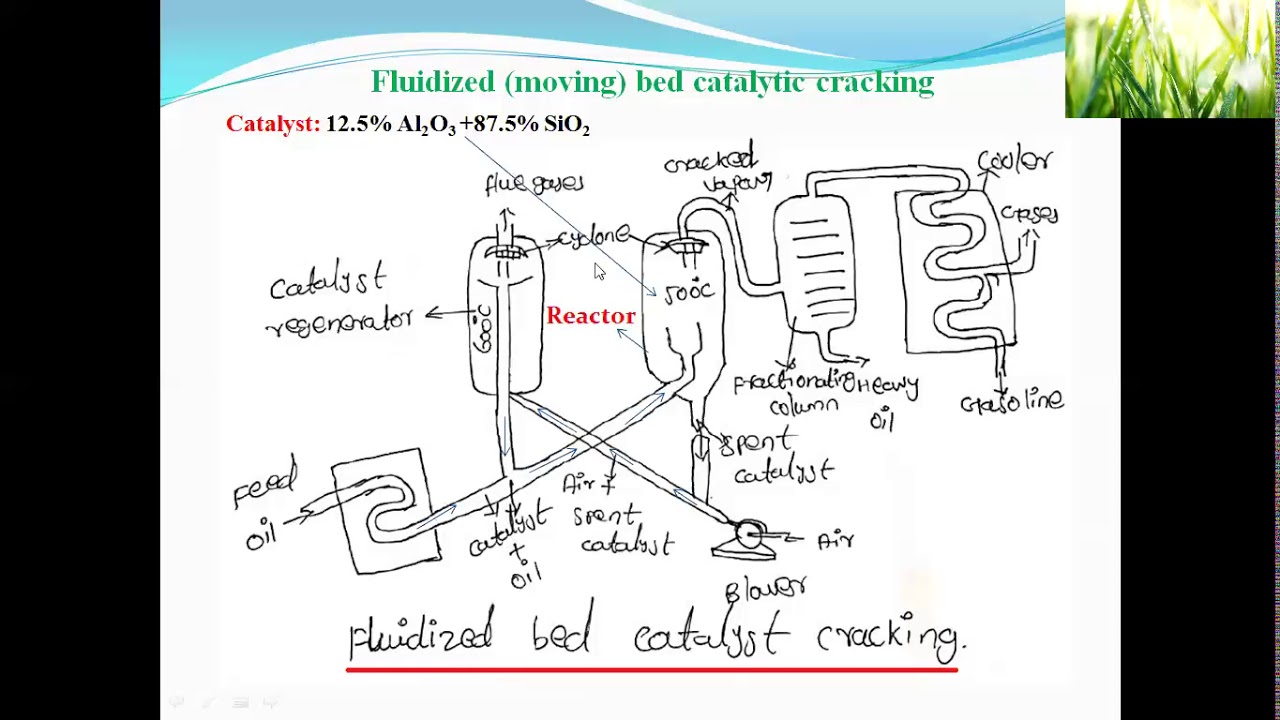 Fluidized (moving) bed catalytic cracking
Catalyst: 12.5% Al₂O₃ +87.5% SiO₂
flue gases
cracked
vapour
Cooler
Gases
cyclone
Catalyst
regenerator
600°C
Reactor
500°C
Fractionating
column
Heavy
oil
Gasoline
spent
catalyst
Feed
oil
catalyst
+
oil
Air +
spent
catalyst
Air
Blower
Fluidized bed catalyst cracking.